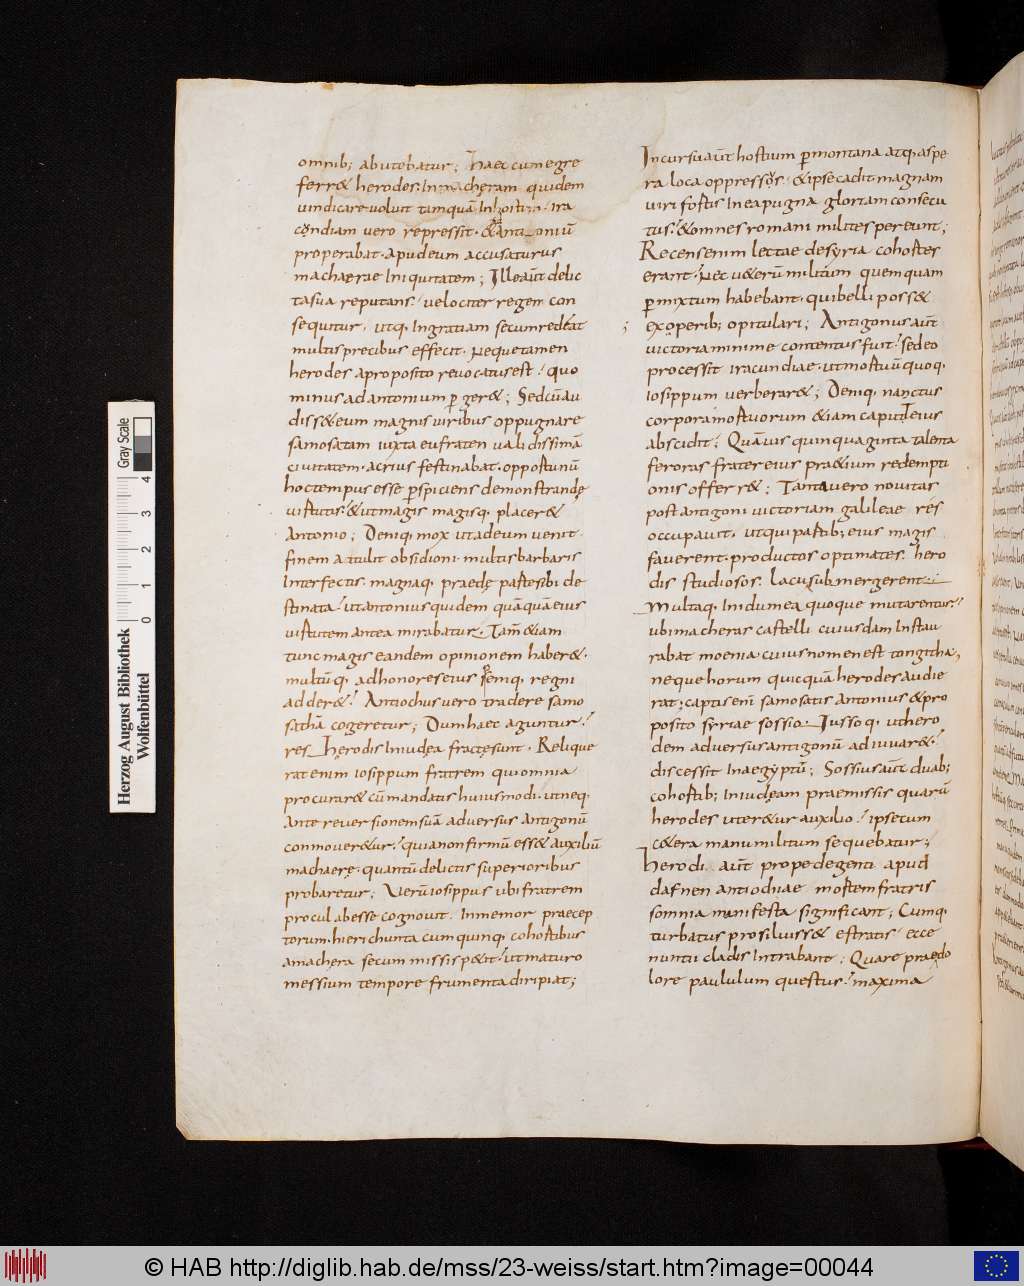 omnib; abutebatur; Haec cum egre
ferr& herodes. In machęram quidem
vindicare voluit tamquā In hostem. ira
cundiam vero repressit. & ad antoniū
properabat. apud eum accusaturus
machaerae Iniquitatem; Ille aūt delic
ta sua reputans. velociter regem con
sequitur. utq. In gratiam secum redeat
multis precibus effecit. Neque tamen
herodes a proposito revocatus est. quo
minus ad antonium pger&; Sed cū au
diss& eum magnis viribus oppugnare
samosatam iuxta eufraten validissimā
civitatem. acrius festinabat. opportunū
hoc tempus esse pspiciens demonstrandę
virtutis. & ut magis magisq. placer&
Antonio; Deniq. mox ut ad eum venit.
finem attulit obsidioni. multis barbaris
Interfectis. magnaq. praedę parte sibi de
stinata. ut antonius quidem quāquā eius
virtutem antea mirabatur. Tam̄ &iam
tunc magis eandem opinionem haber&.
multūq. ad honores eius spemq. regni
adder&. Antiochus vero tradere samo
sathā cogeretur; Dum haec aguntur.
res herodis In iudęa fractę sunt. Relique
rat enim iosippum fratrem qui omnia
procurar& cū mandatis huiusmodi. ut neq.
Ante reversionem suā adversus Antigonū
conmover&ur. quia non firmū ess& auxiliū
machaerę. quantū delictis superioribus
probaretur; Verū iosippus ubi fratrem
procul abesse cognovit. Inmemor praecep
torum. hierichunta cum quinq. cohortibus
a machęra secum missis p&it. ut maturo
messium tempore frumenta diripiat;
Incursu aūt hostium p montana atq. aspe
ra loca oppressus. & ipse cadit magnam
viri fortis In ea pugna gloriam consecu
tus. & omnes romani milites pereunt;
Recens enim lectae de syria cohortes
erant. Nec v&erū militum quemquam
pmixtum habebant. qui belli poss&
expertib; opitulari; Antigonus aūt
victoria minime contentus fuit. sed eo
processit iracundiae. ut mortuū quoq.
iosippum verberar&; Deniq. nanctus
corpora mortuorum &iam caput eius
abscidit; Quāvis quinquaginta talenta
feroras frater eius pr&ium redempti
onis offerr&; Tanta vero novitas
post antigoni victoriam galileae res
occupavit. ut qui partib; eius magis
faverent. productos optimates. hero
dis studiosos. lacu submergerent
Multaq. In idumea quoque mutarentur.
ubi macheras castelli cuiusdam Instau
rabat moenia. cuius nomen est tongitha,
neque horum quicquā herodes audie
rat; captis enī samosatis antonius & pro
posito syriae sossio. Iussoq. ut hero
dem adversus antigonū adiuvar&.
discessit In aegyptū; Sossius aūt duab;
cohortib; In iudęam praemissis quarū
herodes uter&ur auxilio. ipse cum
c&era manu militum sequebatur;
Herodi aūt prope degenti apud
dafnen antiochiae mortem fratris
somnia manifesta significant; Cumq.
turbatus prosiluiss& e stratis. ecce
nuntii cladis Intrabant; Quare prae do
lore paululum questus. maxima
Gray Scale
0 1 2 3 4
Herzog August Bibliothek
Wolfenbüttel
© HAB http://diglib.hab.de/mss/23-weiss/start.htm?image=00044